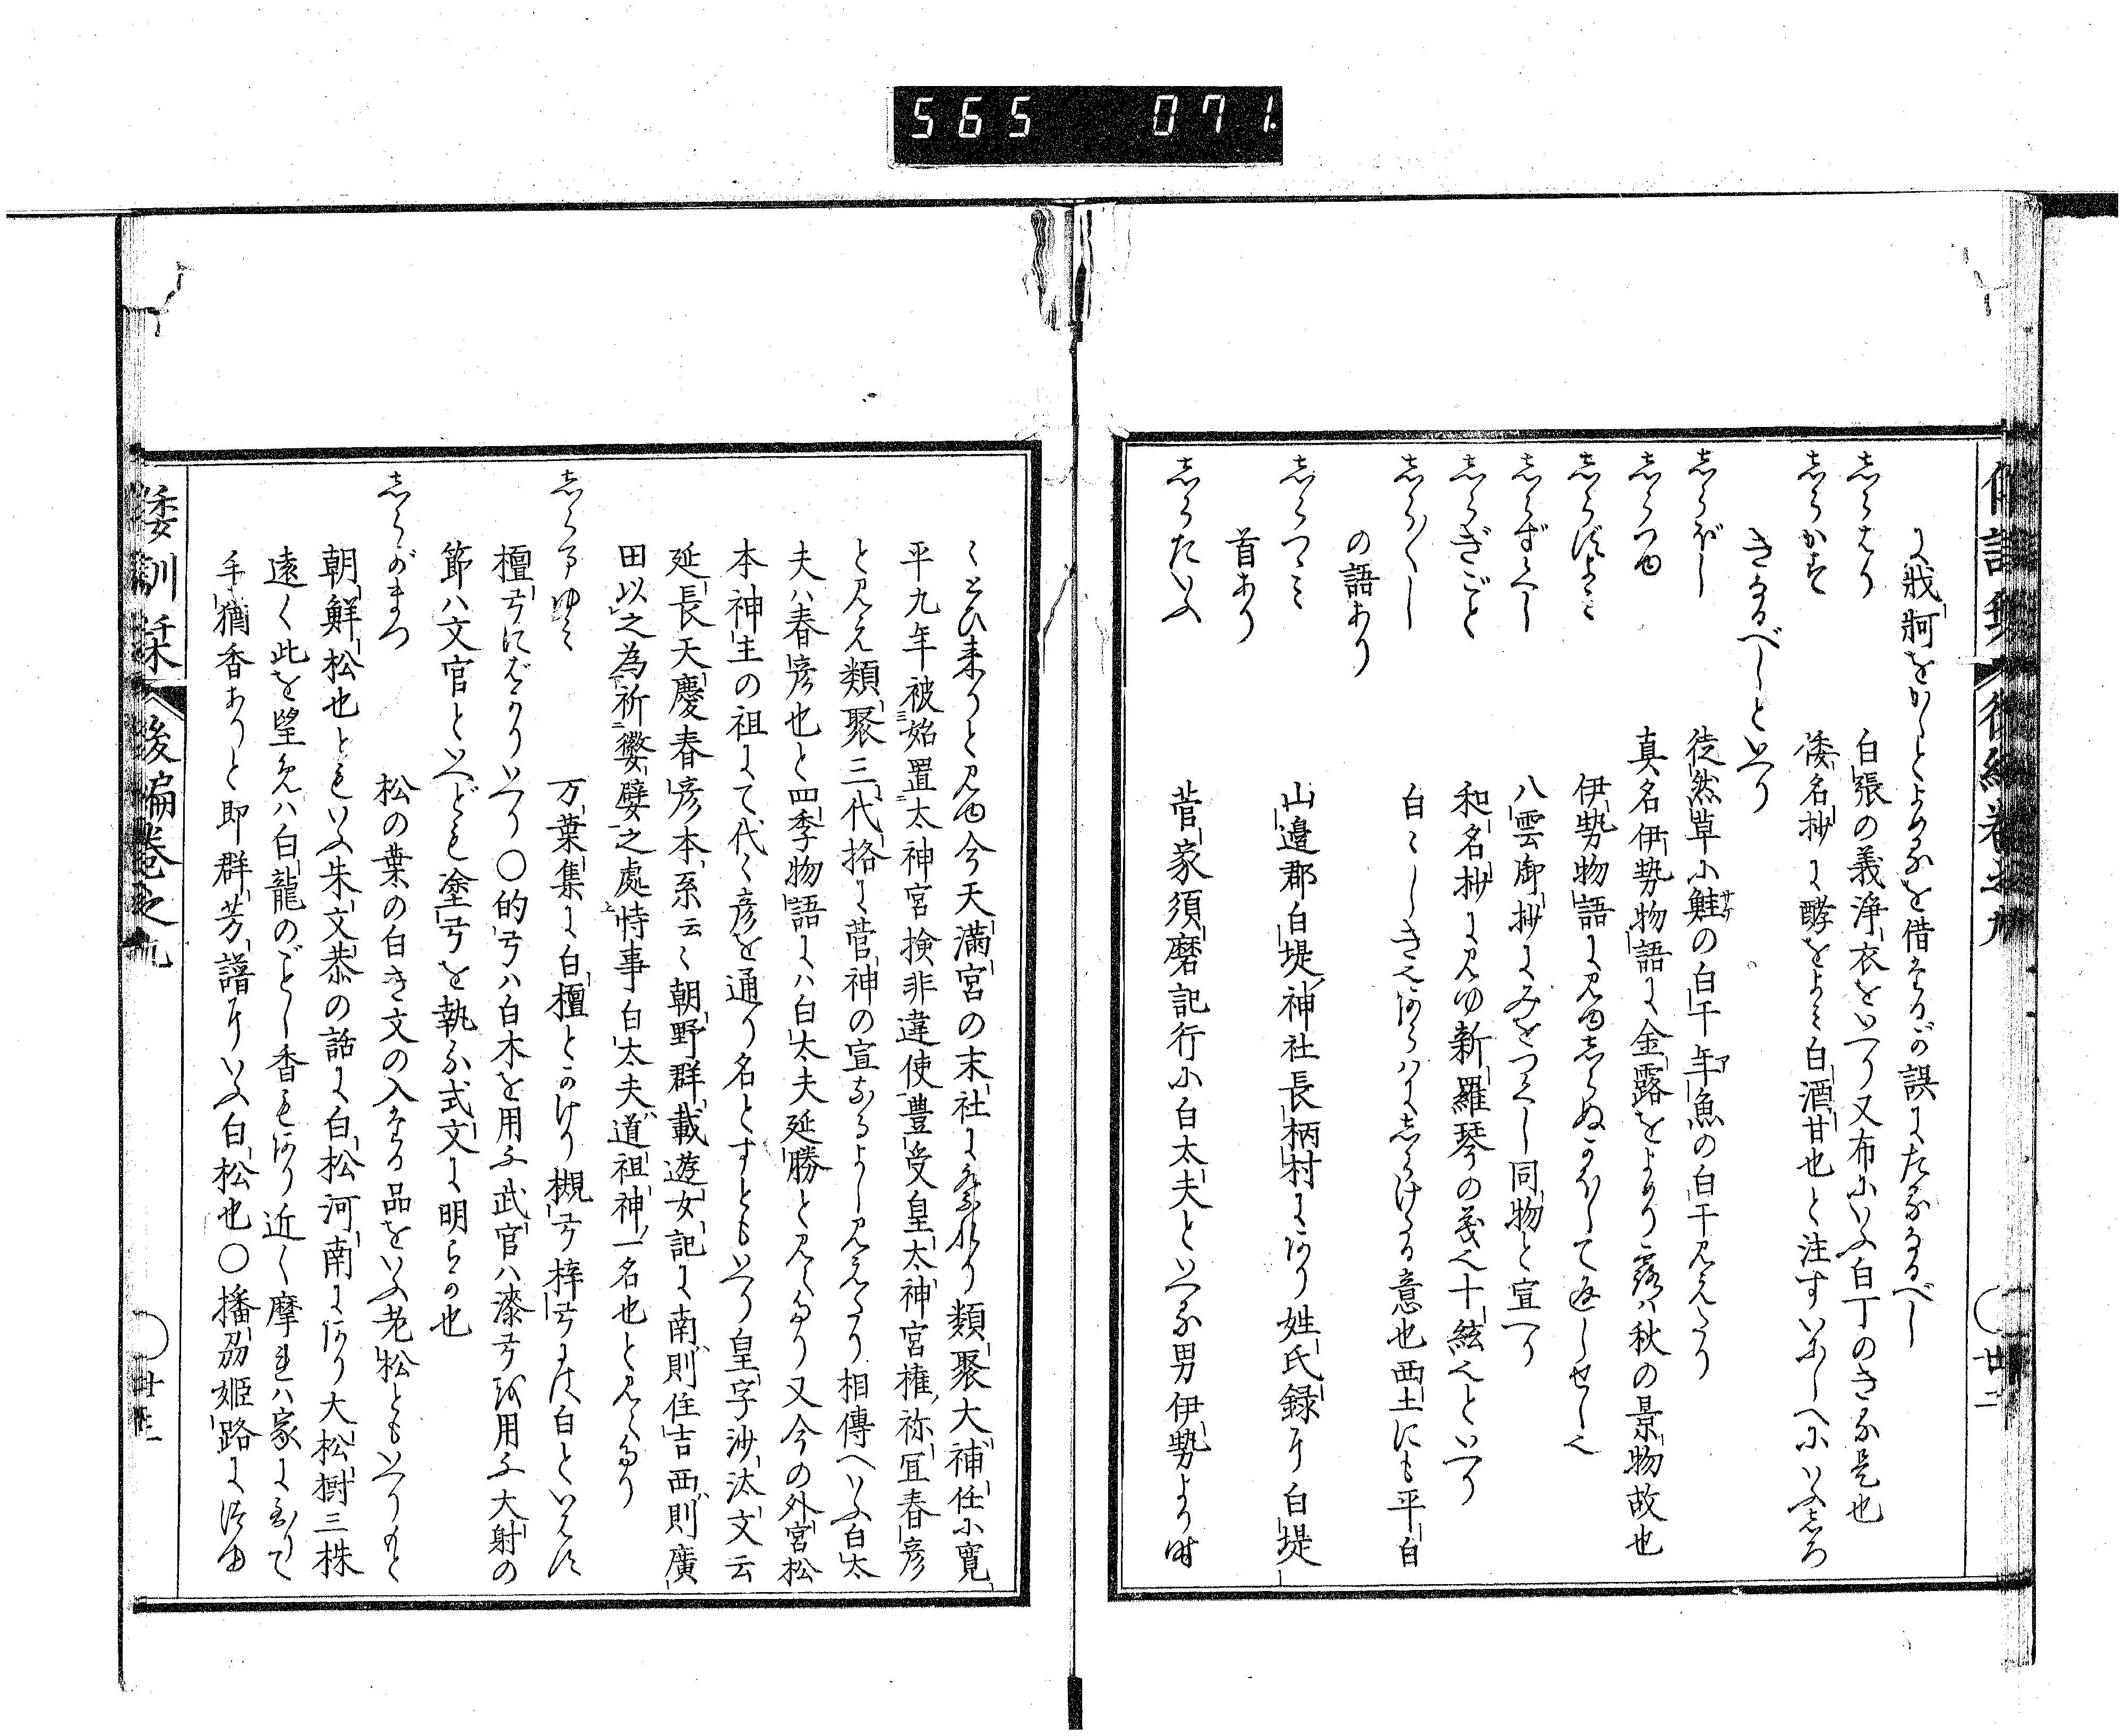 565 071.
に戕牁をかしとよめるを借たるが誤にたるなるべし
しらはり 白張の義浄衣をいへり又布にいふ白丁のきる是也
しらかす 倭名抄に酵をよみ白酒甘也と注すいにしへにいふしろ
きなるべしといへり
しらぼし 徒然草に鮭の白干年魚の白干見えたり
しらつゆ 真名伊勢物語に金露をよめり露は秋の景物故也
しらぬよみ 伊勢物語に見ゆしらぬかほして返しせし也
しらずべし 八雲御抄にみをつくし同物と宣へり
しらぎごと 和名抄に見ゆ新羅琴の義也十絃也といへり
しら〳〵し 白〻しき也あらはにしらける意也西土にも平白
の語あり
しらつゝみ 山邉郡白堤神社長柄村にあり姓氏録に白堤
首あり
しらたいふ 菅家須磨記行に白太夫といへる男伊勢より時
〻とひ来りと見ゆ今天満宮の末社に祭れり類聚大補任に寛
平九年被始置太神宮検非違使豊受皇太神宮権祢宜春彦
と見え類聚三代挌に菅神の宣なるよし見えたり相傳へいふ白太
夫ハ春彦也と四季物語にハ白太夫延勝と見えたり又今の外宮松
本神主の祖にて代〻彦を通り名とすともいへり皇字沙汰文云
延長天慶春彦本系云〻朝野群載遊女記に南則住吉西則廣
田以之為祈徴嬖之處恃事白太夫道祖神一名也と見えたり
しらまゆみ 万葉集に白檀とかけり槻弓梓弓には白といはす
檀弓にばかりいへり〇的弓ハ白木を用ふ武官ハ漆弓を用ふ大射の
節ハ文官といへども塗弓を執る式文に明らか也
しらがまつ 松の葉の白き文の入たる品をいふ老松ともいへりもと
朝鮮松也ともいふ朱文恭の話に白松河南にあり大松樹三株
遠く此を望めハ白龍のごとし香もあり近く摩れハ家にゐりて
手猶香ありと即群芳譜にいふ白松也〇播刕姫路に
倭訓栞 後編巻之九